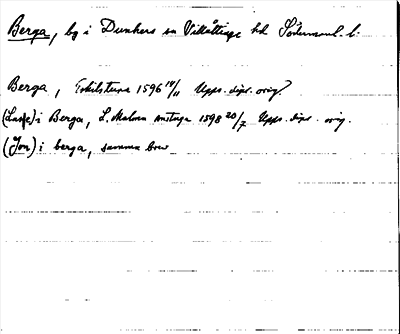 Berga, by i Dunkers sn Villåttinge hd Södermanl. l.
Berga, Eskilstuna 1596 14/11 Upps. dipl. orig.
(Lasse) i Berga, L. Malma 1598 20/7 Upps. dipl. orig.
(Jon) i berga, samma brev